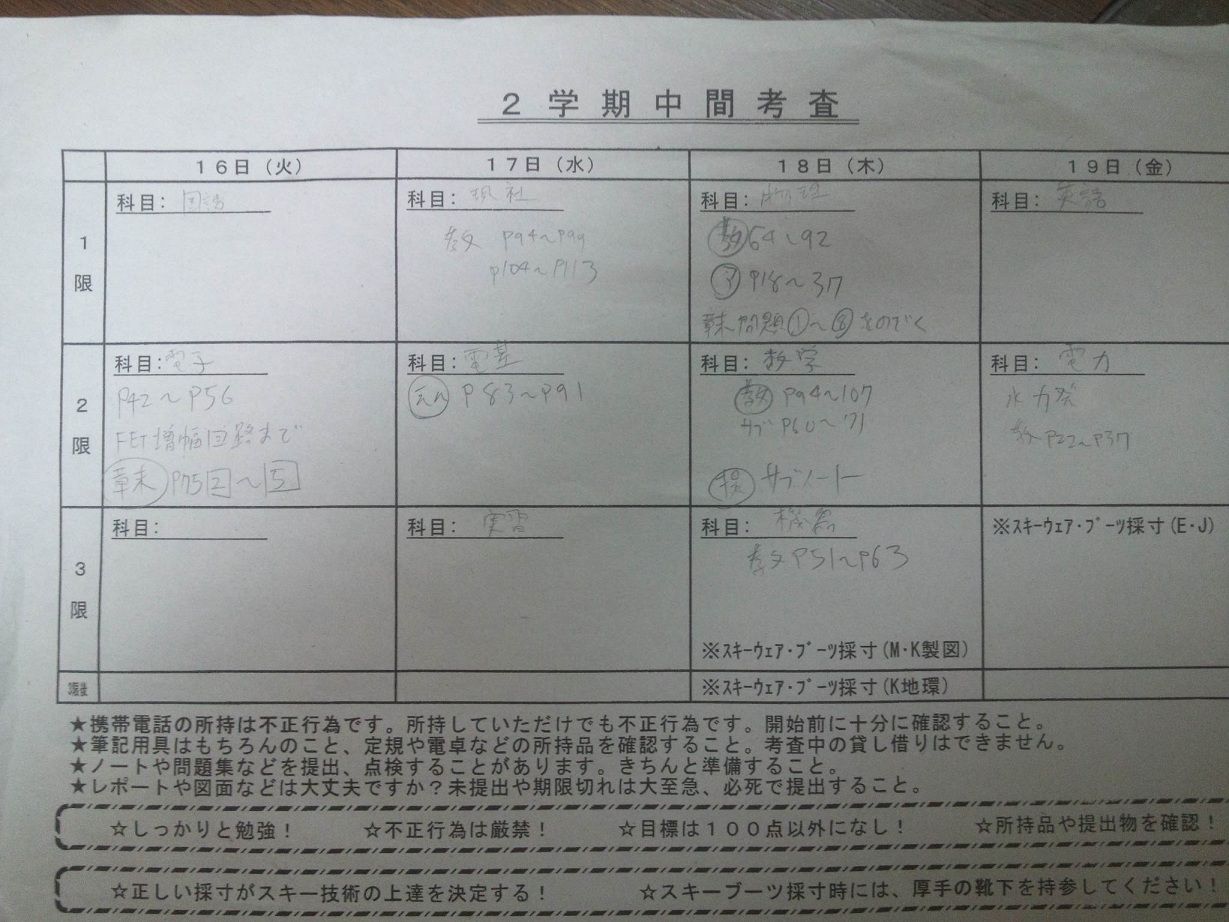 2学期中間考査
16日(火) 17日(水) 18日(木) 19日(金)
1限
科目: 国語
科目: 現社
教 P94~P99
P104~P113
科目: 物理
教 64~92
P18~37
章末問題①~⑧をのぞく
科目: 英語
2限
科目: 電子
P42~P56
FET増幅回路まで
章末 P75 2~5
科目: 電基
P83~P91
科目: 数学
教 P94~107
サブ P60~71
提 サブノート
科目: 電力
水力発
教 P22~P37
3限
科目:
科目: 実習
科目: 機器
教 P51~P63
※スキーウェア・ブーツ採寸(M・K製図)
※スキーウェア・ブーツ採寸(E・J)
3限後
※スキーウェア・ブーツ採寸(K地環)
★携帯電話の所持は不正行為です。所持していただけでも不正行為です。開始前に十分に確認すること。
★筆記用具はもちろんのこと、定規や電卓などの所持品を確認すること。考査中の貸し借りはできません。
★ノートや問題集などを提出、点検することがあります。きちんと準備すること。
★レポートや図面などは大丈夫ですか?未提出や期限切れは大至急、必死で提出すること。
☆しっかりと勉強! ☆不正行為は厳禁! ☆目標は100点以外になし! ☆所持品や提出物を確認!
☆正しい採寸がスキー技術の上達を決定する! ☆スキーブーツ採寸時には、厚手の靴下を持参してください!